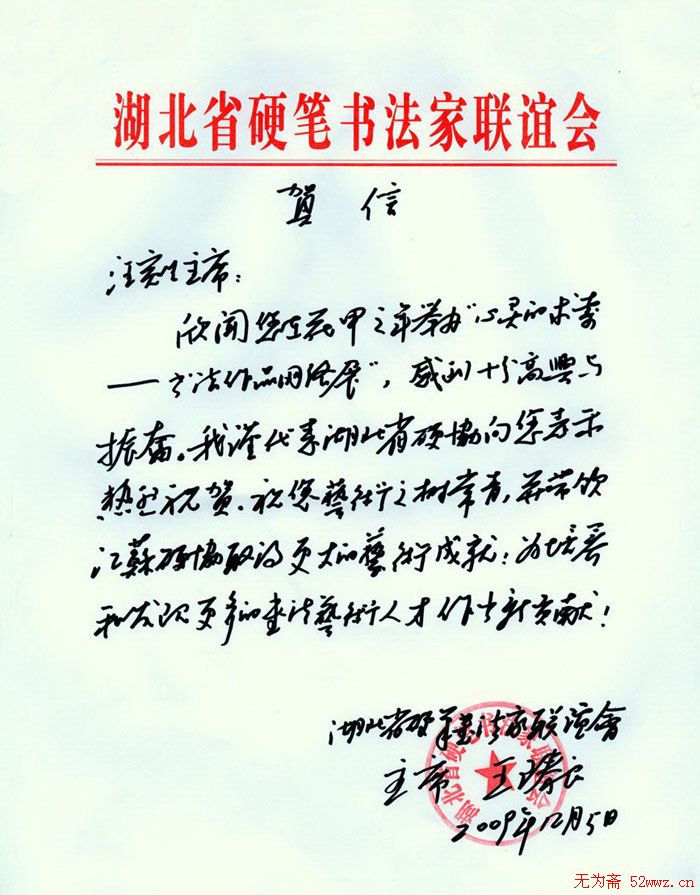 湖北省硬笔书法家联谊会
贺信
汪寅生主席：
欣闻您在花甲之年举办“心灵的求索
——书法作品网络展”，感到十分高興与
振奋。我谨代表湖北省硬協向您表示
热烈祝贺。祝您藝術之树常青，并带领
江蘇硬協取得更大的藝術成就；为培养
和发现更多的书法藝術人才作出新贡献！
湖北省硬筆書法家联誼會
主席 王
2009年12月5日
湖北省硬笔书法家联谊会
无为斋 52wwz.cn